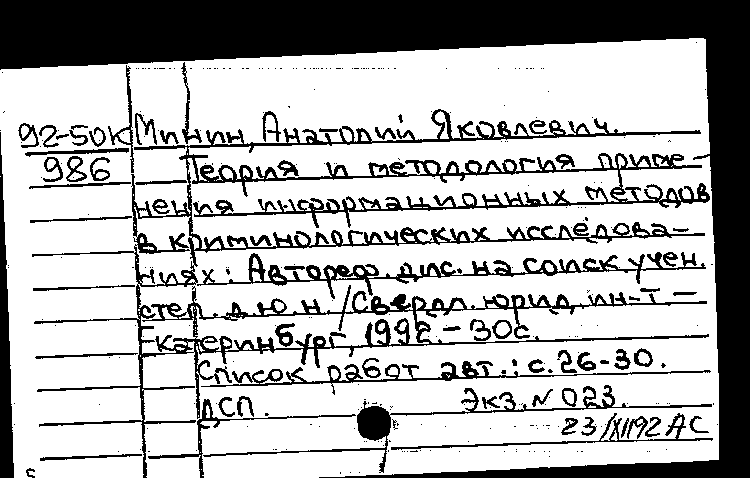 92-50К Минин, Анатолий Яковлевич.
986 Теория и методология приме-
нения информационных методов
в криминологических исследова-
ниях: Автореф. дис. на соиск учен.
степ. д.ю.н. / Свердл. юрид. ин-т –
Екатеринбург, 1992. – 30с.
Список работ авт.: с. 26-30.
ДСП. Экз. N 023.
23/XII92 АС